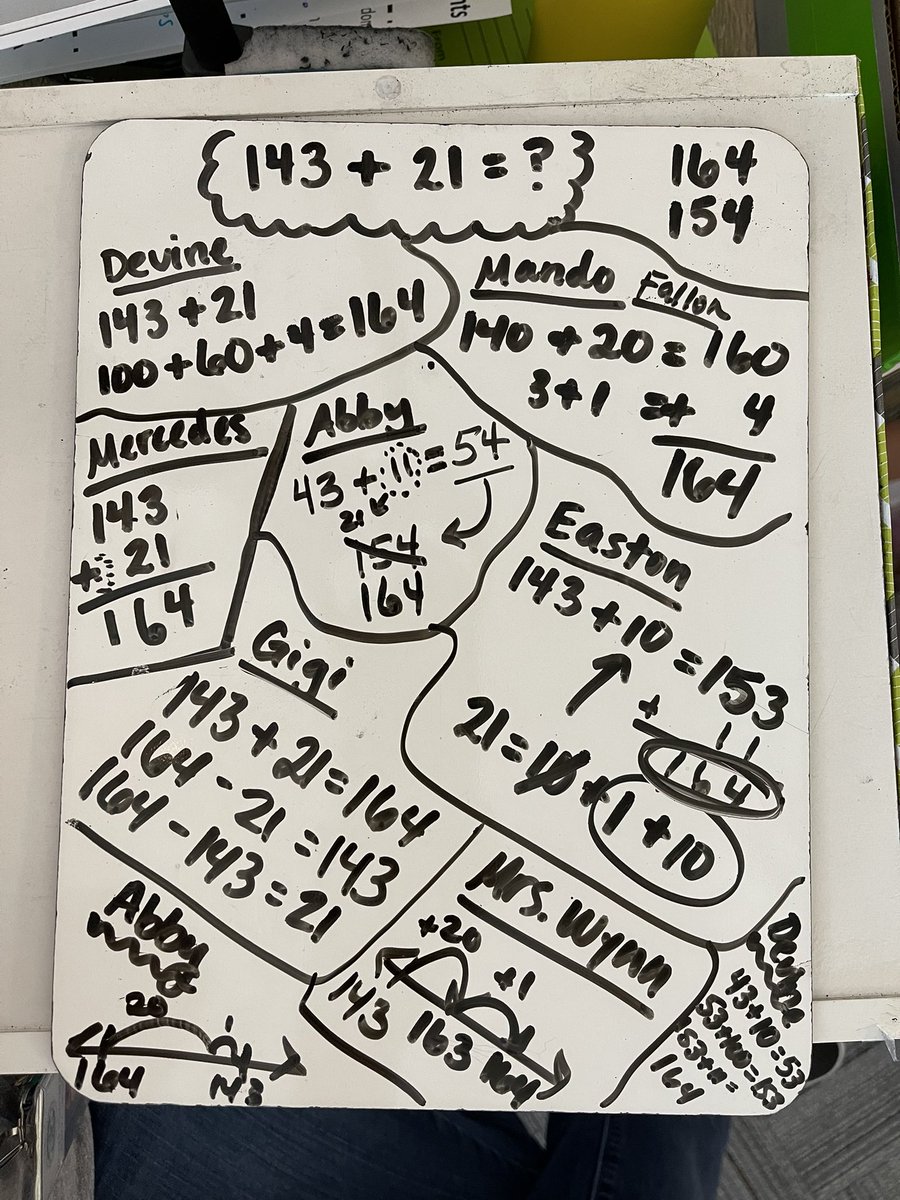 143 + 21 = ?
164
154
Devine
143 + 21
100 + 60 + 4 = 164
Mando Fallon
140 + 20 = 160
3 + 1 = + 4
164
Mercedes
143
+ 21
164
Abby
43 + 11 = 54
21
154
164
Easton
143 + 10 = 153
+ 11
164
21 = 10 + 1 + 10
Gigi
143 + 21 = 164
164 - 21 = 143
164 - 143 = 21
Abby
20
164
Mrs. Wynn
+20 +1
143 163 164
Devine
43 + 10 = 53
153
164